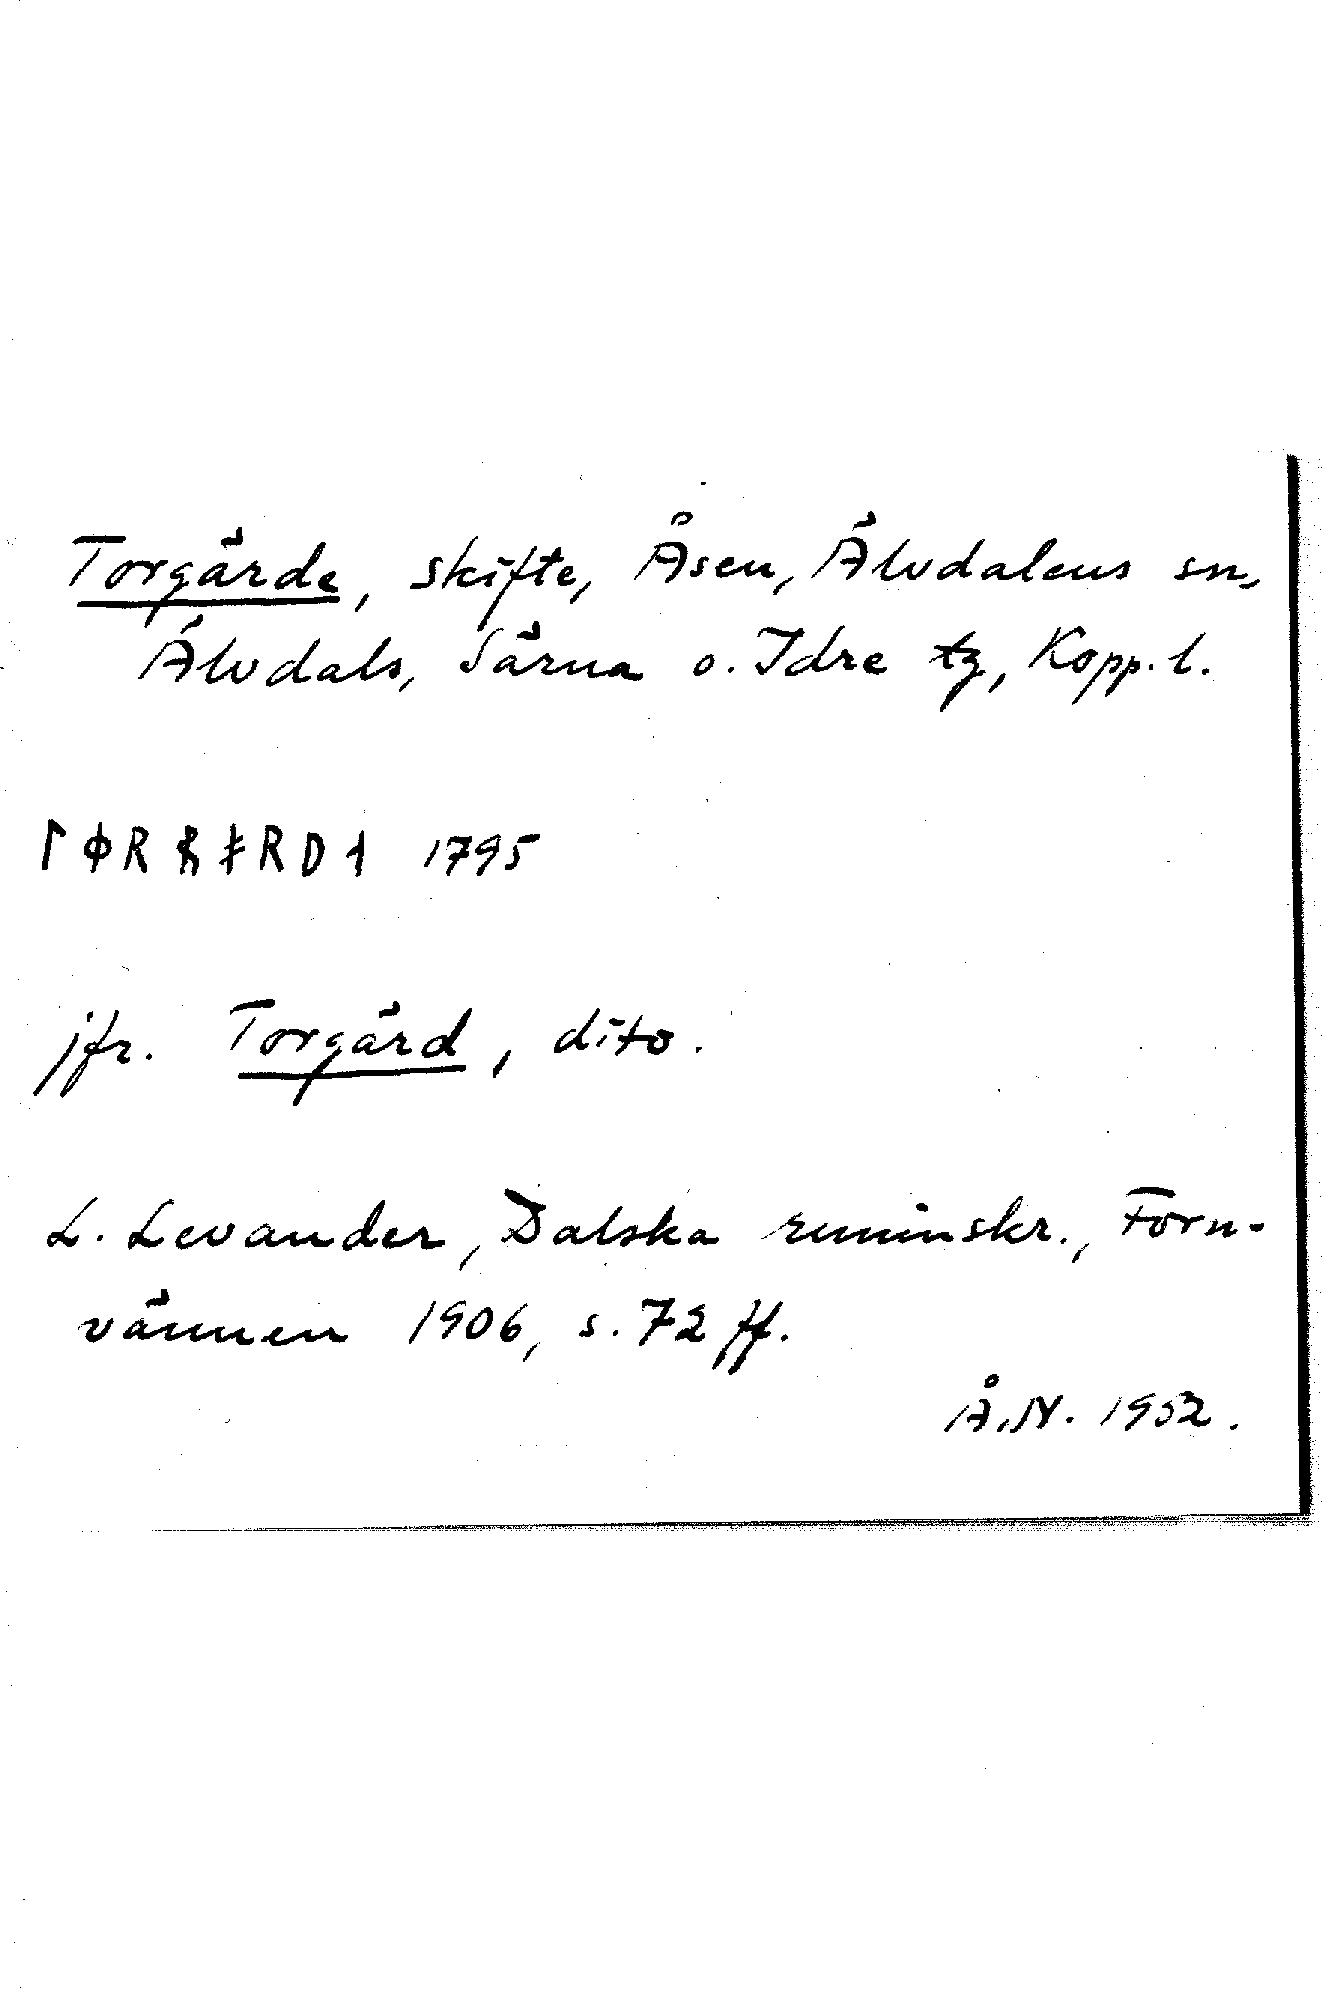 Torgärde, skifte, Åsen, Älvdalens sn,
Älvdals, Särna o. Idre tg, Kopp. l.
ᛚ ᛰ R ᚯ ᚵ R D ᛆ 1795
jfr. Torgärd, dito.
L. Levander, Dalska runinskr., Forn-
vännen 1906, s. 72 ff.
Å.N. 1952.